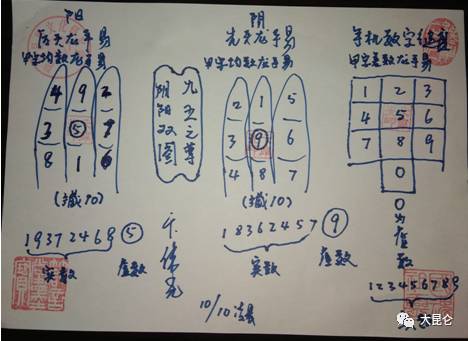 阳
后天龙手易
甲字均数龙手易
4 9 2
3 ⑤ 7
8 1 6
(藏10)
19372468 ⑤
实数 虚数
九五之尊
阴阳双图
阴
先天龙手易
甲字均数龙手易
2 1 5
3 ⑨ 6
4 8 7
(藏10)
18362457 ⑨
实数 虚数
10/10凌晨
手机数字键盘
龙手易
1 2 3
4 5 6
7 8 9
0
0为虚数
123456789
大昆仑